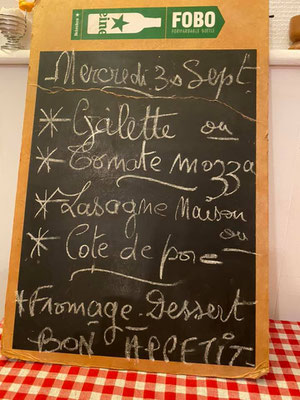 Heineken
eine
FOBO
FORMIDABLE BOTTLE
Mercredi 30 Sept.
* Galette ou
* Tomate mozza
* Lasagne Maison
ou
* Cote de porc
* Fromage - Dessert
BON APPETIT